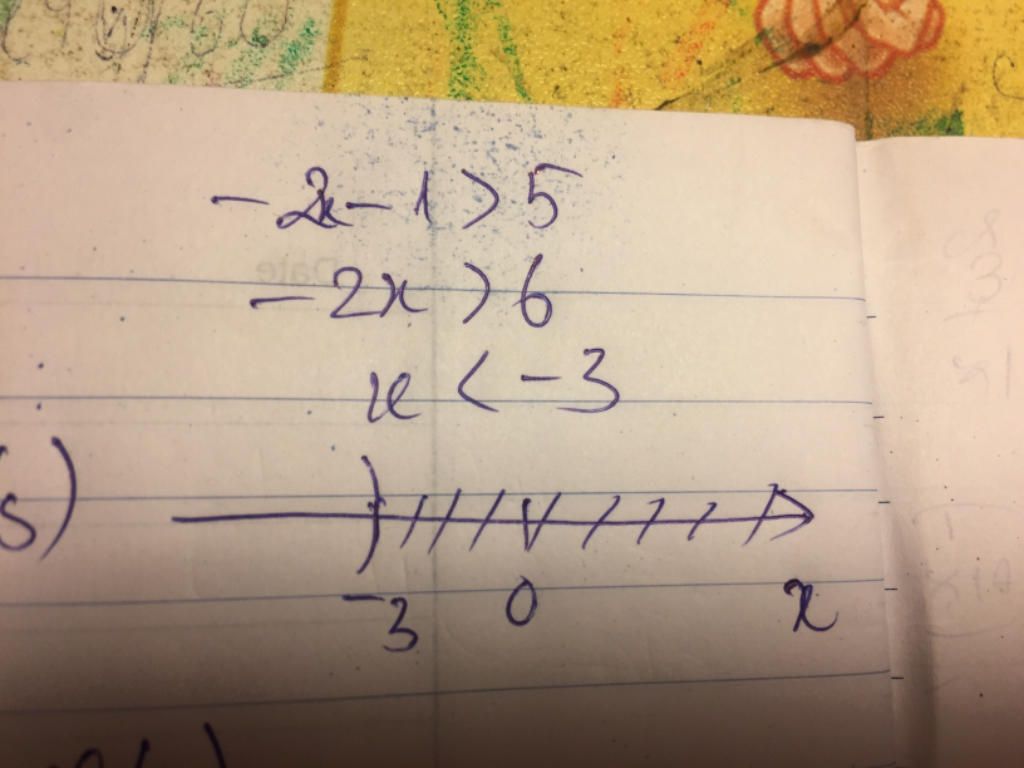 -2x-1>5
-2x>6
x<-3
s)
)
-3 0 x